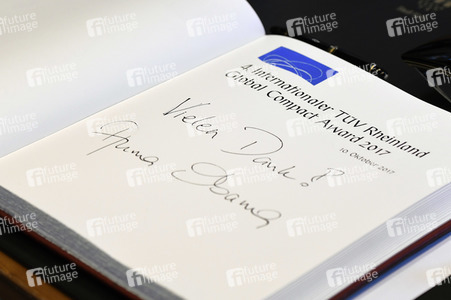 4. Internationaler TÜV Rheinland
Global Compact Award 2017
10. Oktober 2017
Vielen Dank!
Auma Obama
future image